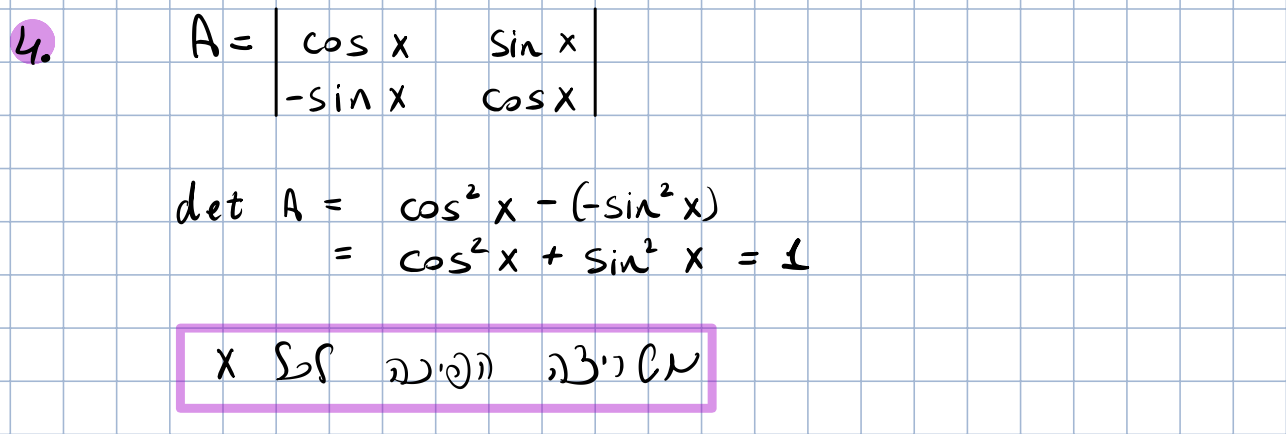 4. A = | cos x sin x |
| -sin x cos x |
det A = cos² x - (-sin² x)
= cos² x + sin² x = 1
מטריצה הפיכה לכל x